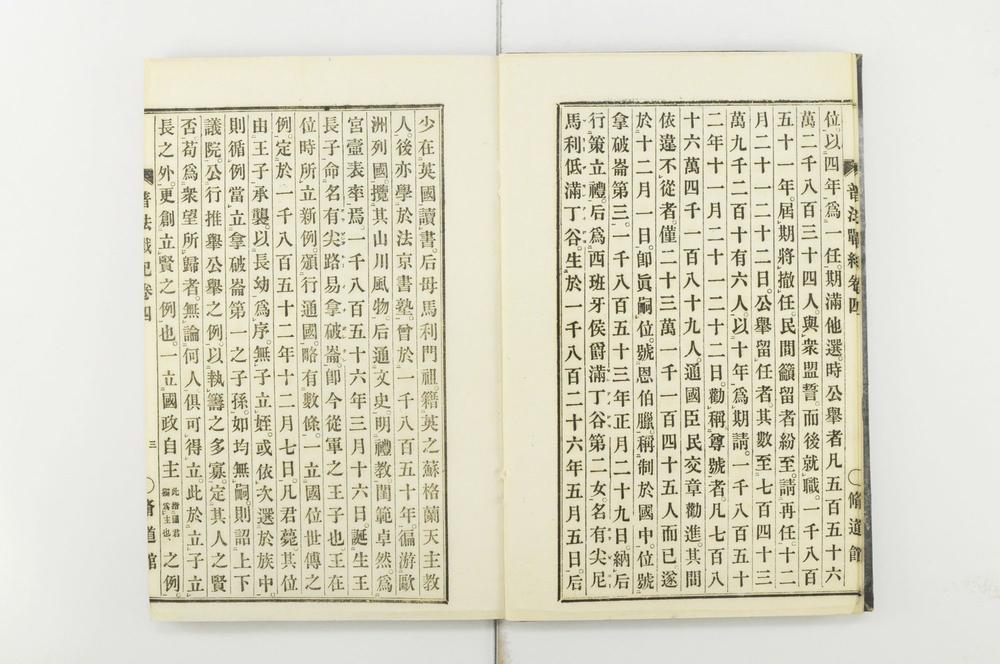 位以四年爲一任期滿他選。時公舉者凡五百五十六
萬二千八百三十四人。與衆盟誓。而後就職。一千八百
五十一年。屆期將撤任。民間籲留者紛至。請再任。十二
月二十一二十二日。公舉留任者其數至七百四十三
萬九千二百十有六人。以十年爲期請。一千八百五十
二年十一月二十一二十二日。勸稱尊號者。凡七百八
十六萬四千一百八十九人。通國臣民交章勸進。其間
依違不從者。僅二十三萬一千一百四十五人而已遂
於十二月一日。卽眞嗣位。號恩伯臘。稱制於國中。位號
拿破崙第三。一千八百五十三年正月二十九日納后
行策立禮。后爲西班牙侯爵滿丁谷第二女。名有尖尼
馬利低滿丁谷。生於一千八百二十六年五月五日。后
普法戰紀卷四
脩道館
少在英國讀書。后母馬利門祖。籍英之蘇格蘭天主教
人。後亦學於法京書塾。曾於一千八百五十年。徧游歐
洲列國。攬其山川風物。后通文史。明禮教。閨範卓然。爲
宮壼表率焉。一千八百五十六年三月十六日。誕生王
長子命名有尖路易拿破崙。卽今從軍之王子也。王在
位時所立新例。頒行通國。略有數條。一立國位世傳之
例。定於一千八百五十二年十二月七日。凡君薨。其位
由王子承襲。以長幼爲序。無子立姪。或依次選於族中。
則循例當立拿破崙第一之子孫。如均無嗣。則詔上下
議院。公行推舉公舉之例。以執籌之多寡。定其人之賢
否苟爲衆望所歸者。無論何人俱可得立。此於立子立
長之外。更創立賢之例也。一立國政自主此指國君獨爲主也之例。
普法戰紀卷四
三
脩道館